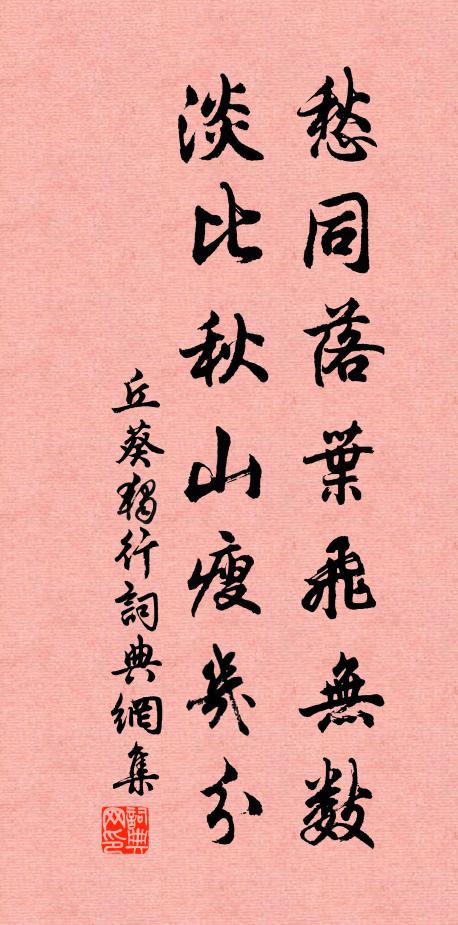 愁同落葉飛無数
淡比秋山瘦幾分
丘葵獨行詞典網集
詞典网印